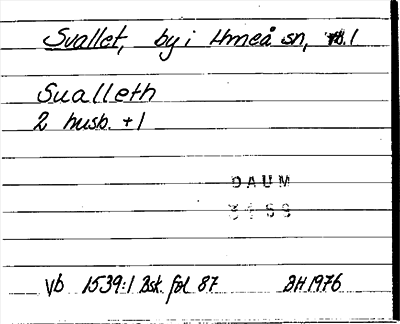 Svallet, by i Umeå sn, vb. 1
Sualleth
2 husb. +1
DAUM
Vb 1539:1 Bsk. fol 87 BH 1976